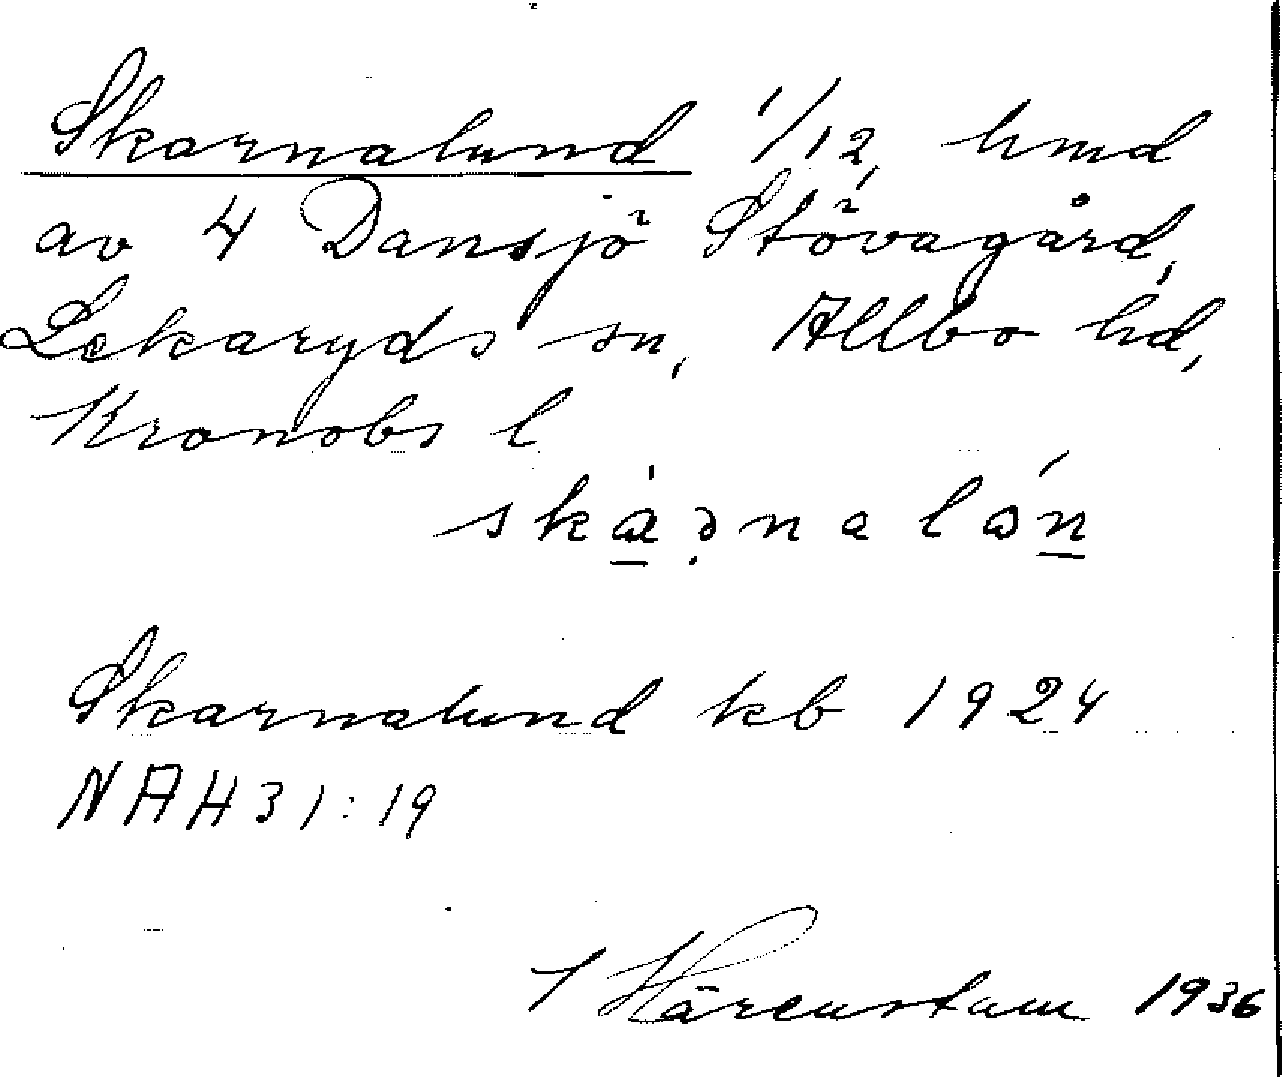 Skarnalund 1/12 hmd
av 4 Dansjö Stövagård,
Lekaryds sn, Allbo hd,
Kronobs l
Skarnalund kb 1924
NAH31:19
Härenstam 1936